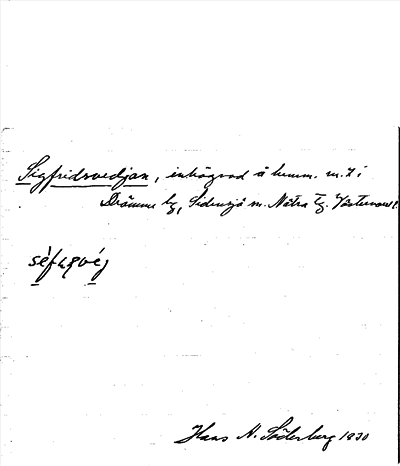 Sigfridsvedjan, inhägnad å hemm. nr. 7 i
Drömme by, Sidensjö sn. Nätra tg. Västernorrl.
Hans N. Söderberg 1930